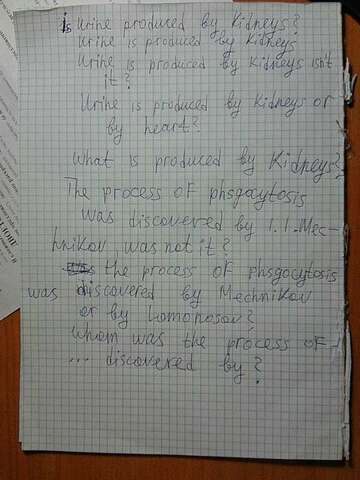 is Urine produced by Kidneys?
Urine is produced by Kidneys
Urine is produced by Kidneys isn't
it?
Urine is produced by Kidneys or
by heart?
What is produced by Kidneys?
The process of phsgaytosis
was discovered by I.I.Mec-
hnikov was not it?
the process of phsgocytosis
was discovered by Mechnikov
or by Lomonosov?
Whom was the process of
... discovered by?